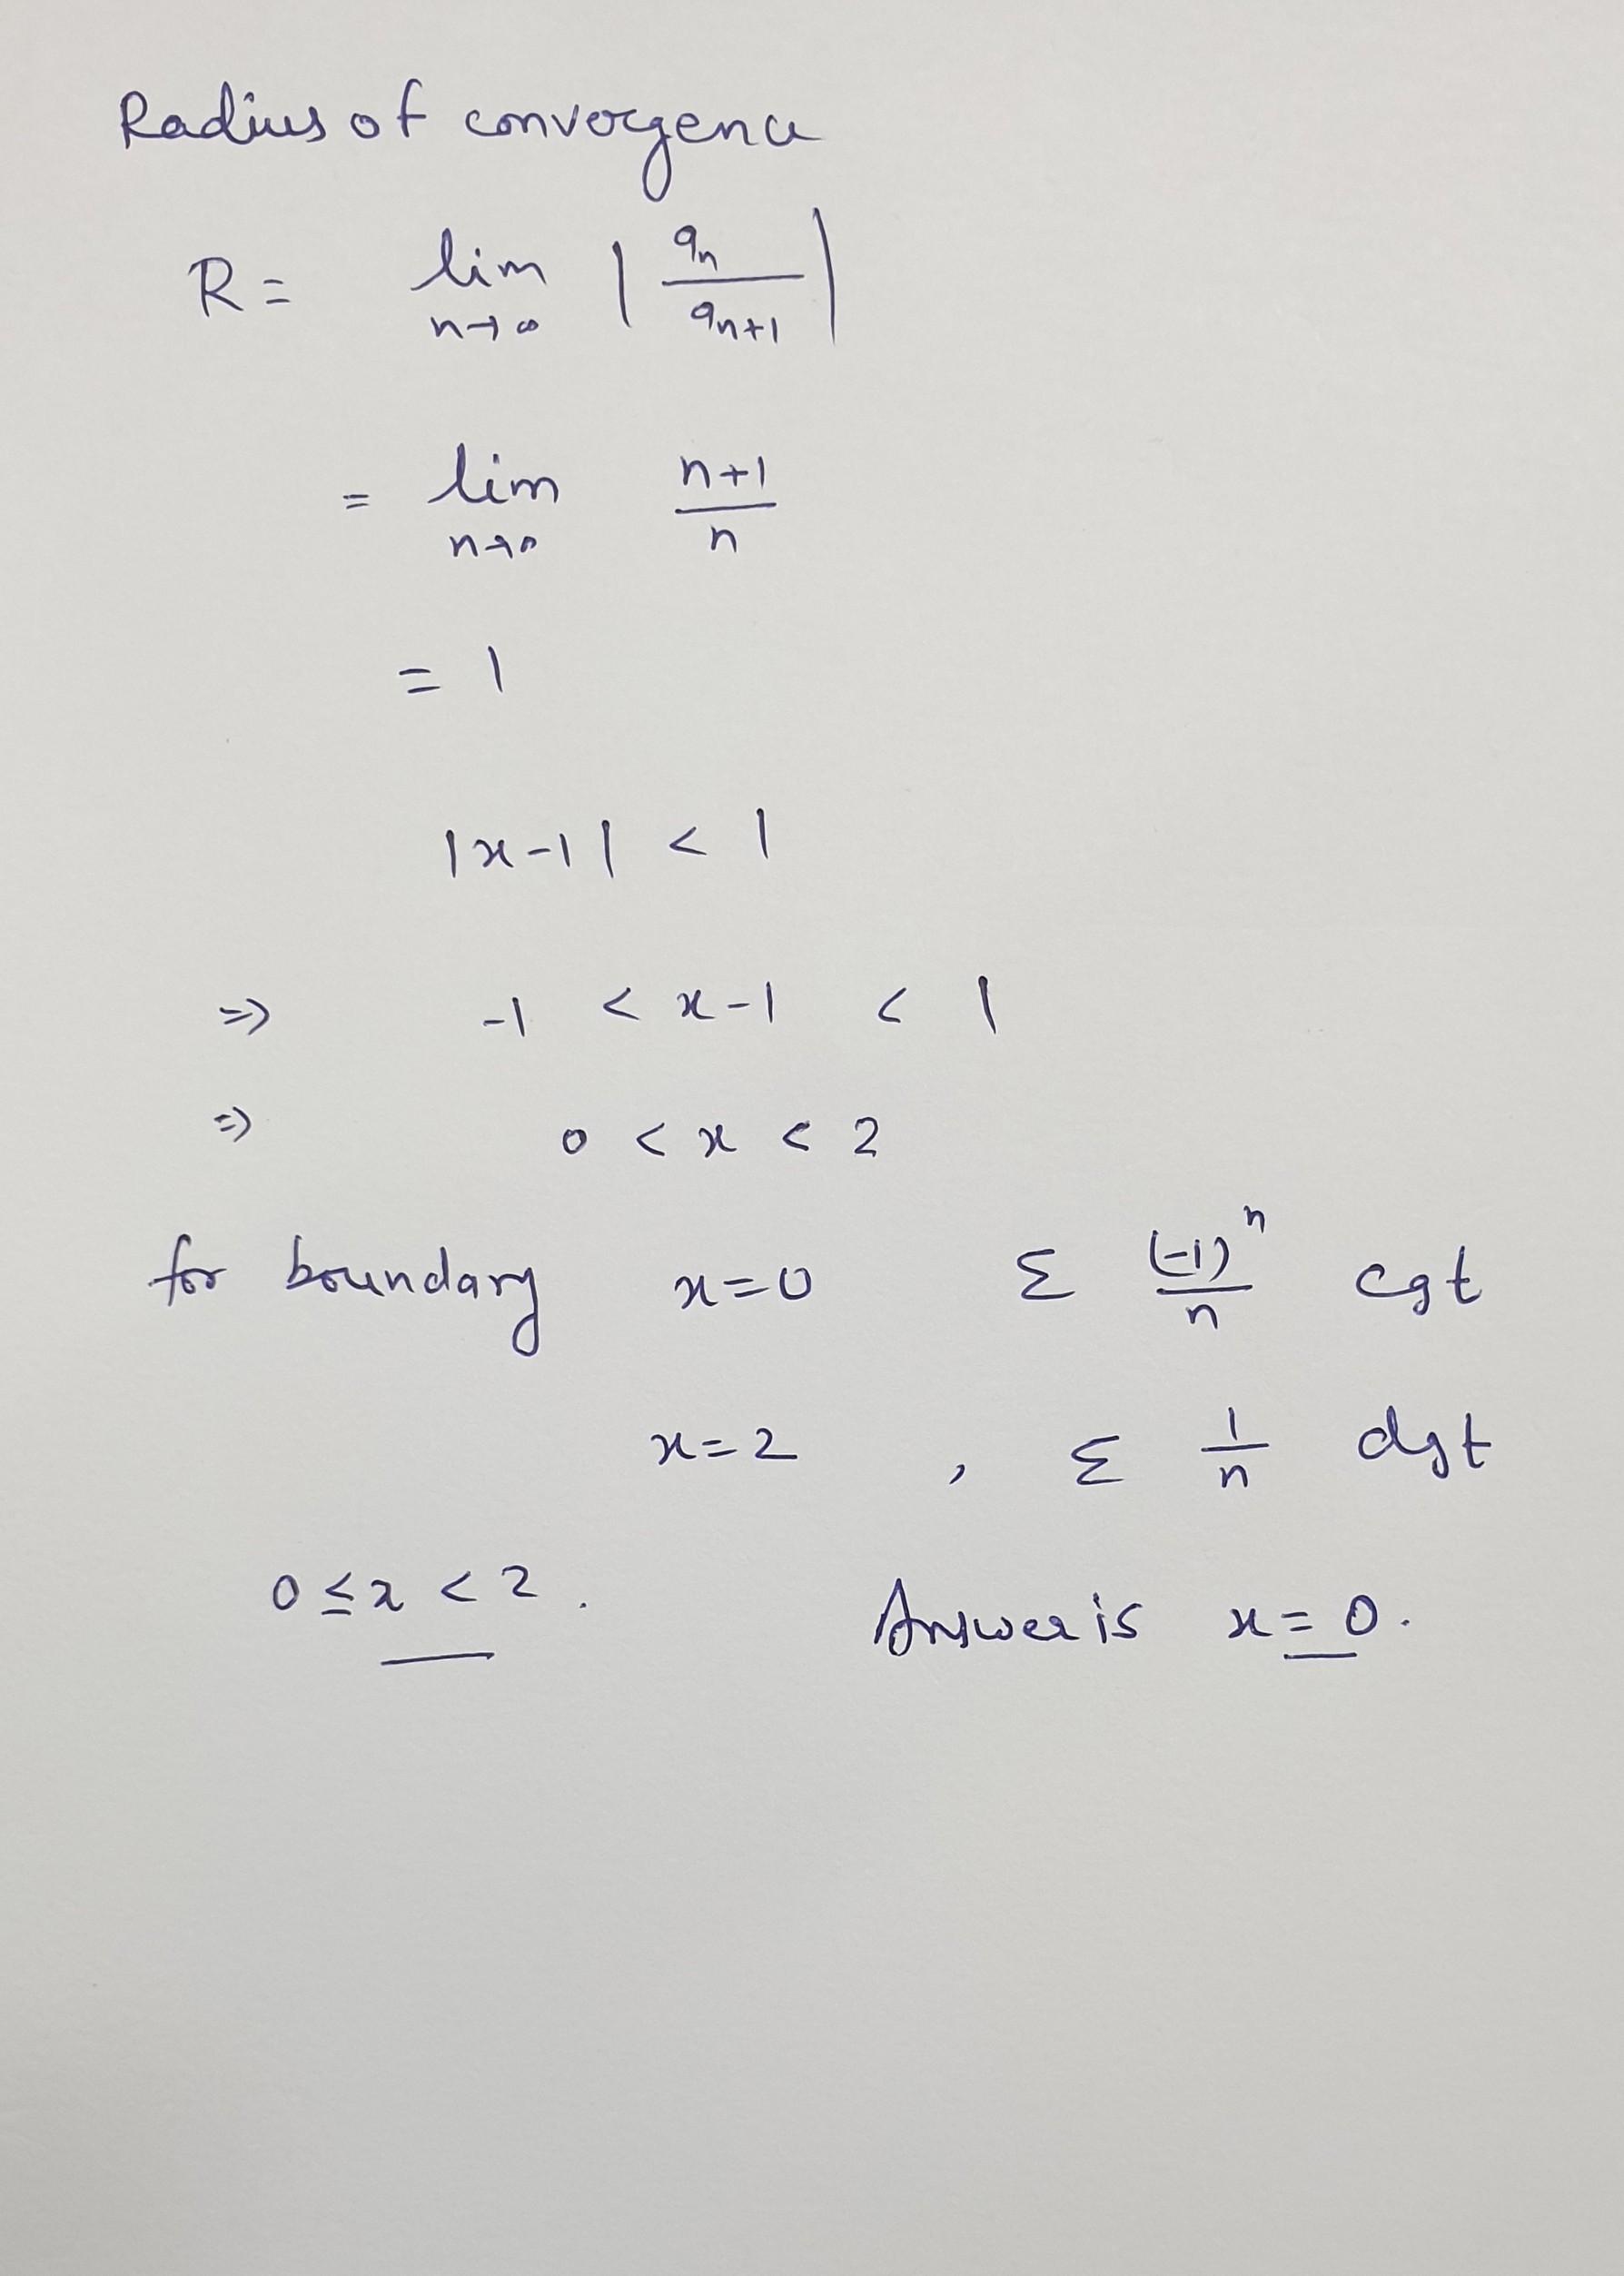 Radius of convergence
R = lim n→∞ | aₙ / aₙ₊₁ |
= lim n→∞ (n+1)/n
= 1
|x-1| < 1
⇒ -1 < x-1 < 1
⇒ 0 < x < 2
for boundary x=0 Σ (-1)ⁿ/n cgt
x=2 , Σ 1/n dgt
0 ≤ x < 2. Answer is x = 0.